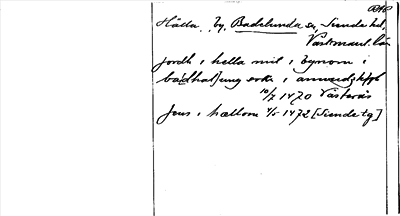 Hälla by, Badelunda sn, Siende hd,
Västmanl. län
jordh i hella mit i bynom i
ba(dhal)ung sokn i
10/7 1470 Västerås
Jens i hællom 4/5 1472 [Siende tg]